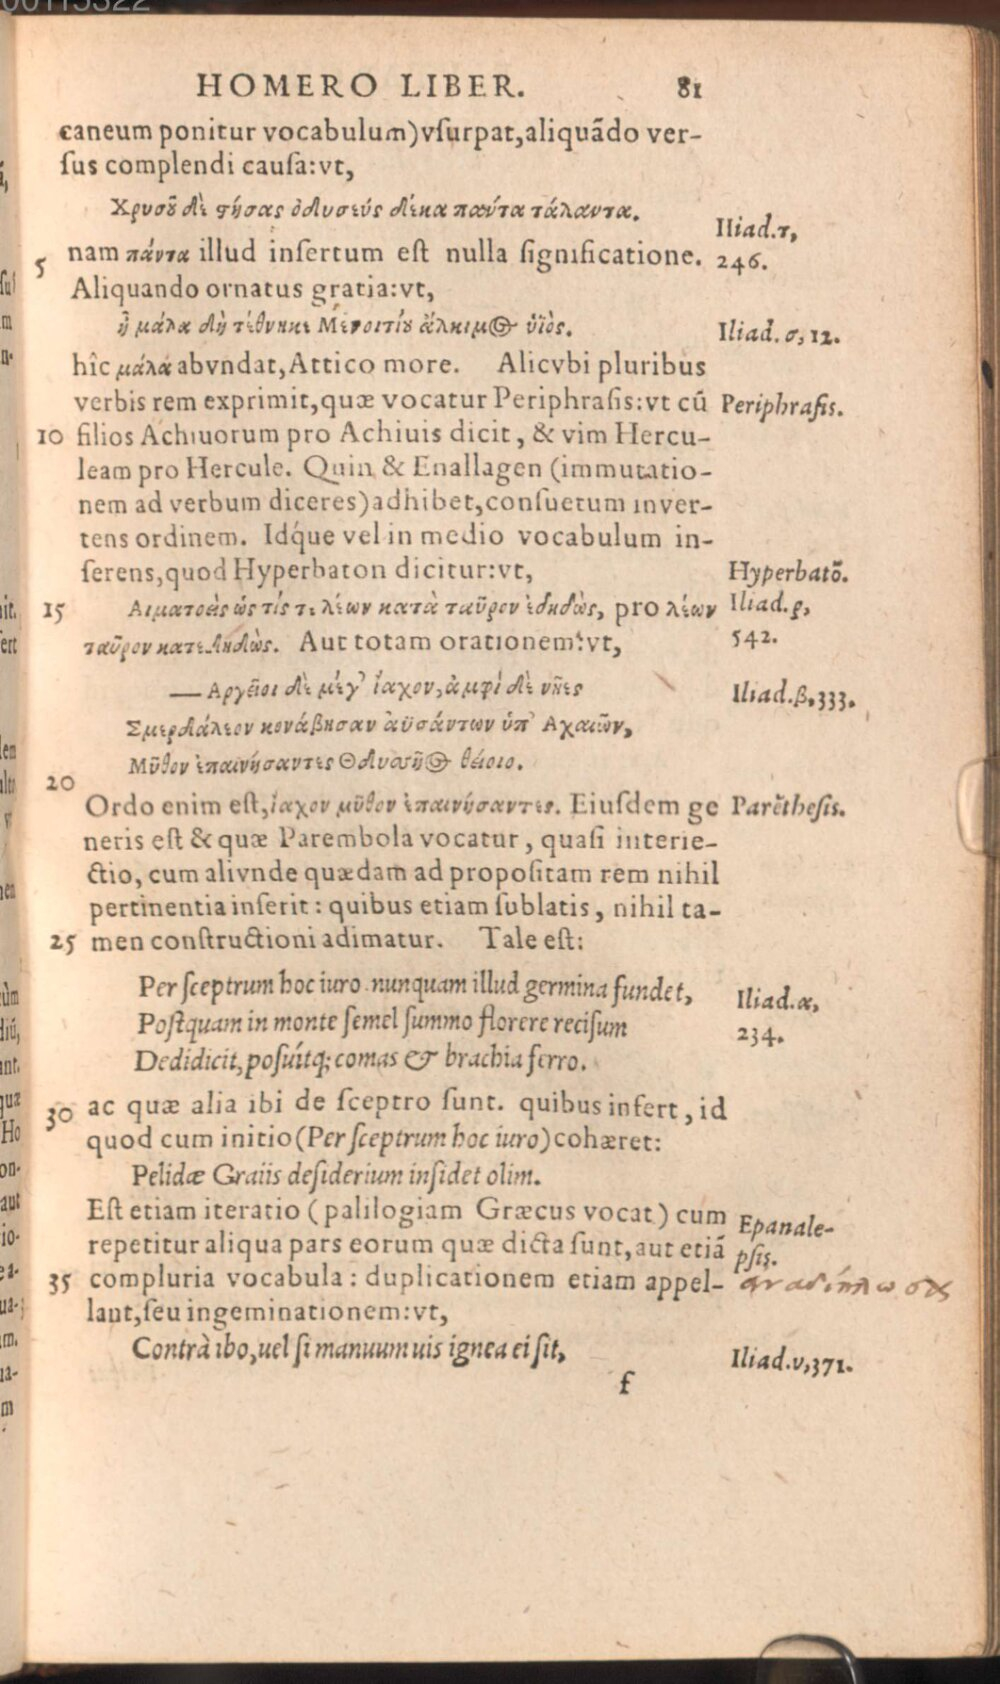 00115322
HOMERO LIBER. 81
caneum ponitur vocabulum)vſurpat,aliquãdo ver-
ſus complendi cauſa:vt,
Χρυσοῦ δὲ στήσας ὀδυσεύς δέκα πάντα τάλαντα.
Iliad.τ,
5 nam πάντα illud inſertum eſt nulla ſignificatione. 246.
Aliquando ornatus gratia:vt,
ἦ μάλα δὴ τέθνηκε Μενοιτίου ἄλκιμος ὑϊὸς. Iliad. σ, 12.
hîc μάλα abvndat,Attico more. Alicvbi pluribus
verbis rem exprimit,quæ vocatur Periphraſis:vt cũ Periphraſis.
10 filios Achiuorum pro Achiuis dicit, & vim Hercu-
leam pro Hercule. Quin & Enallagen (immutatio-
nem ad verbum diceres)adhibet,conſuetum inver-
tens ordinem. Idq́ue vel in medio vocabulum in-
ſerens,quod Hyperbaton dicitur:vt, Hyperbatõ.
15 Αιματοεὶς ὡς τίς τε λέων κατὰ ταῦρον ἐδηδὼς, pro λέων Iliad.ρ,
ταῦρον κατεδηδὼς. Aut totam orationem:vt, 542.
— Αργεῖοι δὲ μέγ' ἴαχον, ἀμφὶ δὲ νῆες Iliad.β,333.
Σμερδάλεον κονάβησαν ἀϋσάντων ὑπ' Αχαιῶν,
Μῦθον ἐπαινήσαντες Οδυσσῆος θείοιο.
20
Ordo enim eſt,ἴαχον μῦθον ἐπαινήσαντες. Eiuſdem ge Parẽtheſis.
neris eſt & quæ Parembola vocatur, quaſi interie-
ctio, cum alivnde quædam ad propoſitam rem nihil
pertinentia inſerit: quibus etiam ſublatis, nihil ta-
25 men conſtructioni adimatur. Tale eſt:
Per ſceptrum hoc iuro nunquam illud germina fundet, Iliad.α,
Poſtquam in monte ſemel ſummo florere reciſum 234.
Dedidicit, poſuítq; comas & brachia ferro.
30 ac quæ alia ibi de ſceptro ſunt. quibus infert, id
quod cum initio(Per ſceptrum hoc iuro)cohæret:
Pelidæ Graiis deſiderium inſidet olim.
Eſt etiam iteratio (palilogiam Græcus vocat) cum Epanale-
repetitur aliqua pars eorum quæ dicta ſunt, aut etiã pſis.
35 compluria vocabula: duplicationem etiam appel- αναδίπλωσις
lant,ſeu ingeminationem:vt,
Contrà ibo,uel ſi manuum uis ignea ei ſit, Iliad.υ,371.
f